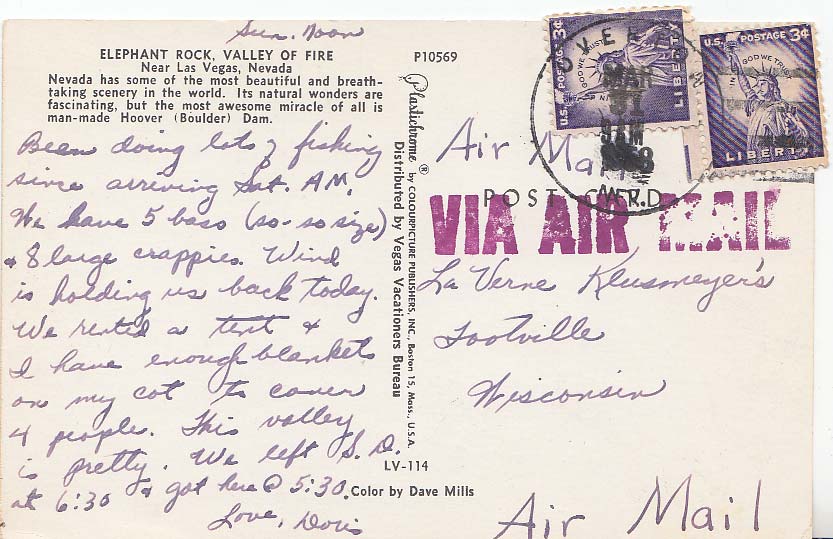 Sun. Noon
ELEPHANT ROCK, VALLEY OF FIRE
Near Las Vegas, Nevada
Nevada has some of the most beautiful and breath-
taking scenery in the world. Its natural wonders are
fascinating, but the most awesome miracle of all is
man-made Hoover (Boulder) Dam.
P10569
Been doing lots of fishing
since arriving Sat. AM.
We have 5 bass (so-so size)
& 8 large crappies. Wind
is holding us back today.
We rented a tent &
I have enough blankets
on my cot to cover
4 people. This valley
is pretty. We left S.D.
at 6:30 & got here @ 5:30.
Love, Doris
Plastichrome ® by COLOURPICTURE PUBLISHERS, INC., Boston 15, Mass., U.S.A.
Distributed by Vegas Vacationers Bureau
LV-114
Color by Dave Mills
U.S. POSTAGE 3¢
IN GOD WE TRUST
LIBERTY
U.S. POSTAGE 3¢
IN GOD WE TRUST
LIBERTY
OVER
MAR
Air Mail
POST CARD
VIA AIR MAIL
La Verne Klusmeyer's
Footville
Wisconsin
Air Mail